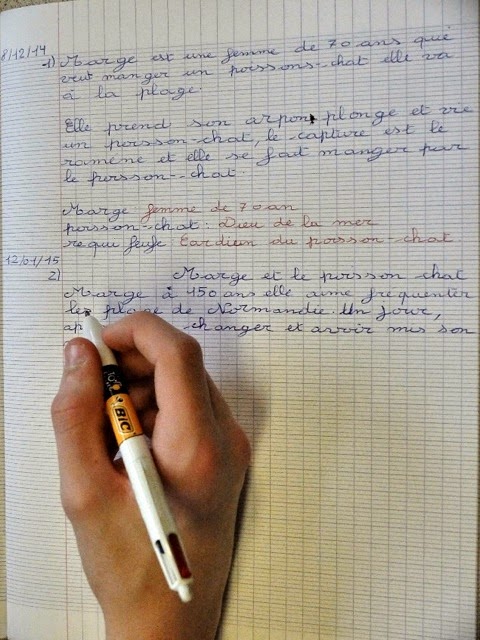 8/12/14
1) Marge est une femme de 70 ans qui
veut manger un poissons-chat elle va
à la plage.
Elle prend son arpon plonge et vie
un poisson-chat, le capture est le
ramène et elle se fait manger par
le poisson-chat.
Marge femme de 70 an
poisson-chat: Dieu de la mer
requi Gardien du poisson-chat
12/01/15
2) Marge et le poisson chat
Marge à 450 ans elle aime fréquenter
les plage de Normandie. Un jour,
changer et avoir mis son
BIC